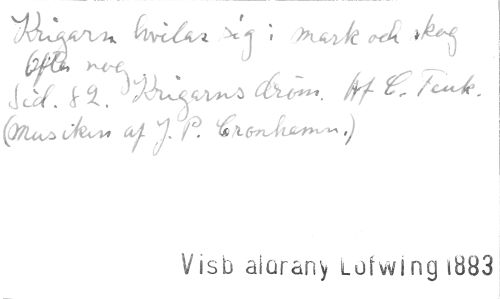 Krigarn hvilar sig i mark och skog
Efter nog
Sid. 82. Krigarns dröm. Af C. Fink.
(Musiken af J. P. Cronhamn.)
Visb aldrany Lofwing 1883